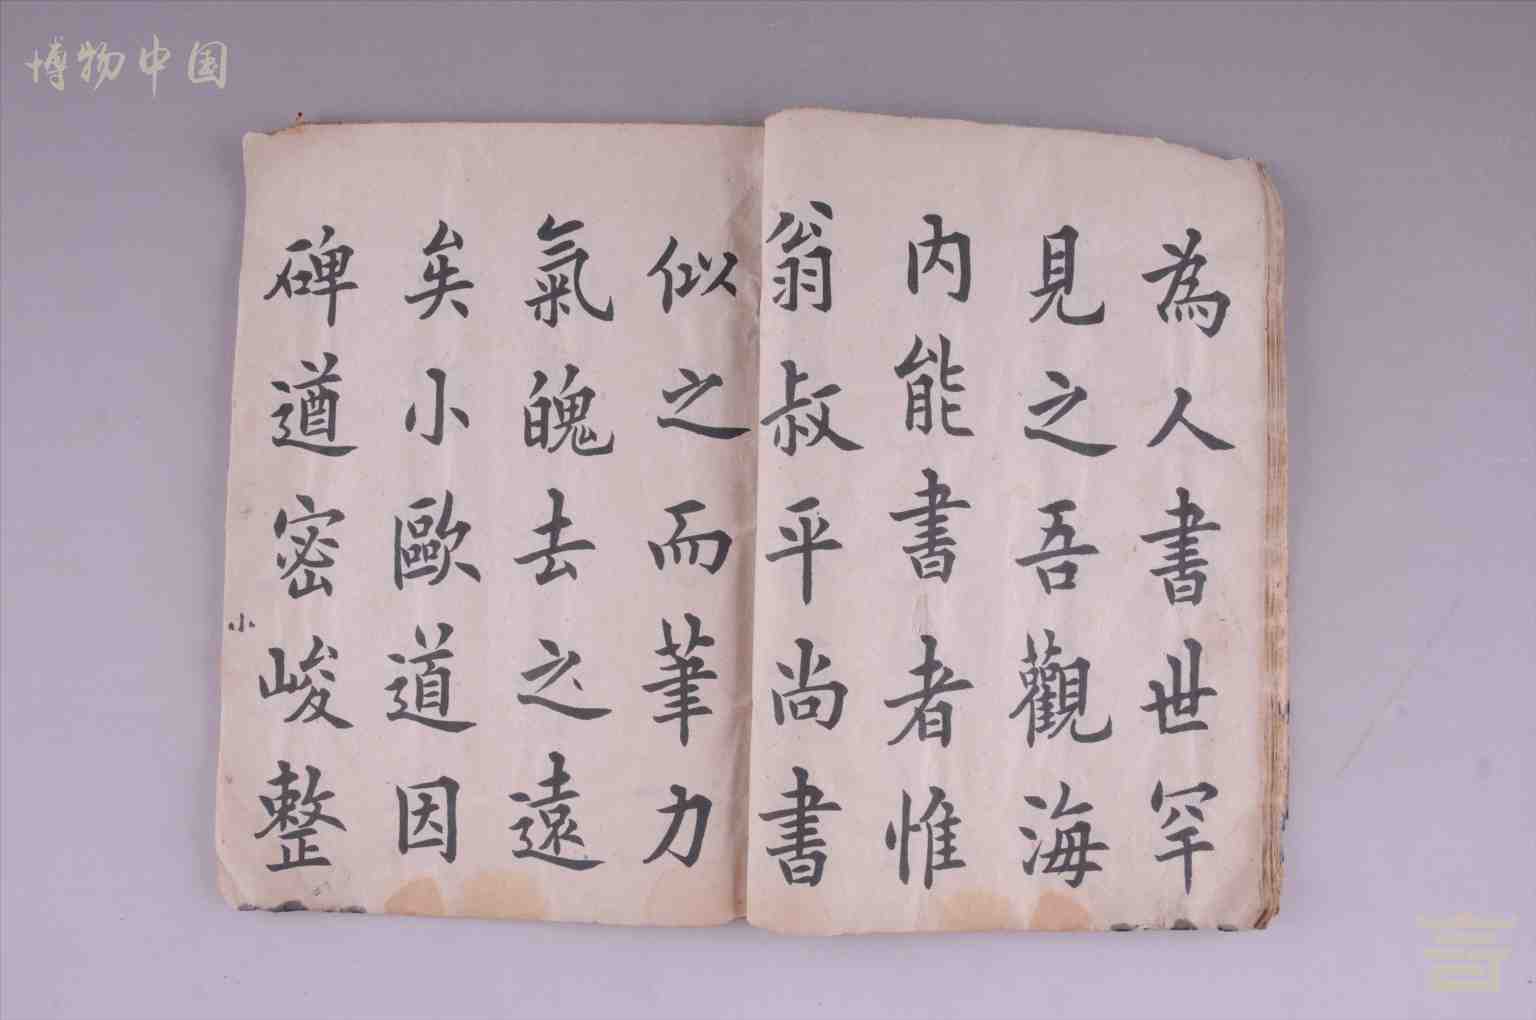 博物中国
為人書世罕
見之吾觀海
內能書者惟
翁叔平尚書
似之而筆力
氣魄去之遠
矣小歐道因
碑遒密峻整
小